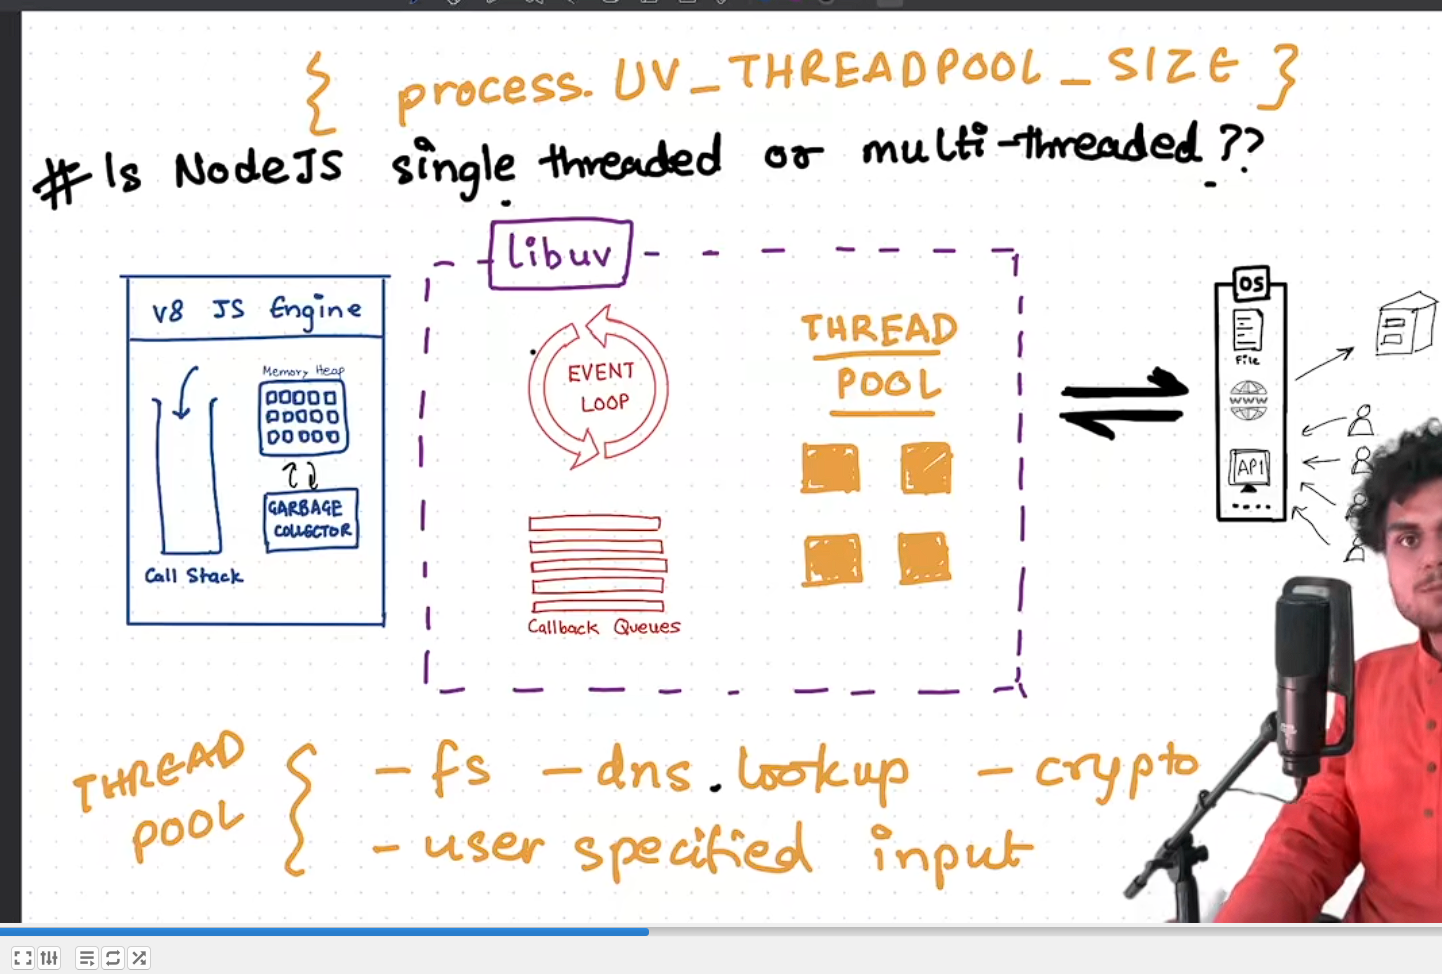 { process. UV_THREADPOOL_SIZE }
# Is NodeJS single threaded or multi-threaded ??
libuv
V8 JS Engine
Memory Heap
GARBAGE
COLLECTOR
Call Stack
EVENT
LOOP
Callback Queues
THREAD
POOL
OS
File
WWW
API
THREAD
POOL
- fs - dns.lookup - crypto
- user specified input